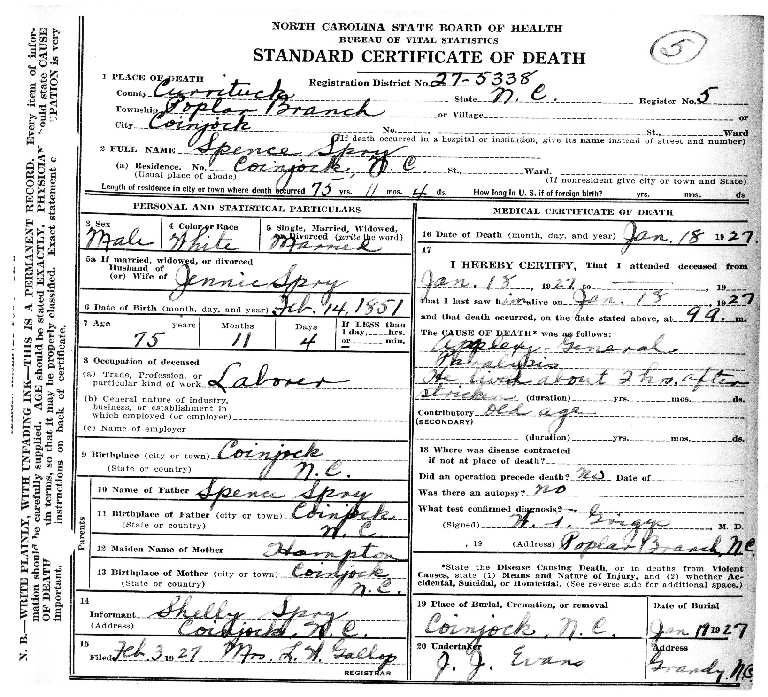 NORTH CAROLINA STATE BOARD OF HEALTH
BUREAU OF VITAL STATISTICS
STANDARD CERTIFICATE OF DEATH
5
1 PLACE OF DEATH
Registration District No. 27-5338
County Currituck
State N.C.
Register No. 5
Township Poplar Branch
or Village
or
City Coinjock
No.
St.,
Ward
(If death occurred in a hospital or institution, give its name instead of street and number)
2 FULL NAME Spence Spry
(a) Residence. No. Coinjock, N C St., Ward.
(Usual place of abode)
(If nonresident give city or town and State)
Length of residence in city or town where death occurred 75 yrs. 11 mos. 4 ds. How long in U. S. if of foreign birth? yrs. mos. ds.
PERSONAL AND STATISTICAL PARTICULARS
3 Sex
Male
4 Color or Race
White
5 Single, Married, Widowed,
or Divorced (write the word)
Married
5a If married, widowed, or divorced
Husband of
(or) Wife of
Jennie Spry
6 Date of Birth (month, day, and year) Feb. 14, 1851
7 Age years Months Days If LESS than
1 day, hrs.
or min.
75 11 4
8 Occupation of deceased
(a) Trade, Profession, or
particular kind of work Laborer
(b) General nature of industry,
business, or establishment in
which employed (or employer)
(c) Name of employer
9 Birthplace (city or town) Coinjock
(State or country) N.C.
Parents
10 Name of Father Spence Spry
11 Birthplace of Father (city or town) Coinjock
(State or country) N.C.
12 Maiden Name of Mother Hampton
13 Birthplace of Mother (city or town) Coinjock
(State or country) N.C.
14
Informant Shelby Spry
(Address) Coinjock, N.C.
15
Filed Feb 3 1927 Mrs. L. N. Gallop
REGISTRAR
MEDICAL CERTIFICATE OF DEATH
16 Date of Death (month, day, and year) Jan. 18 1927.
17
I HEREBY CERTIFY, That I attended deceased from
Jan. 18, 1927 to , 19
that I last saw him alive on Jan. 18 1927
and that death occurred, on the date stated above, at 9 a. m.
The CAUSE OF DEATH* was as follows:
General
Paralysis
He lived about 2 hrs. after
stricken (duration) yrs. mos. ds.
Contributory old age
(SECONDARY)
(duration) yrs. mos. ds.
18 Where was disease contracted
if not at place of death?
Did an operation precede death? No Date of
Was there an autopsy? no
What test confirmed diagnosis?
(Signed) M. D.
, 19 (Address) Poplar Branch, N.C.
*State the Disease Causing Death, or in deaths from Violent
Causes, state (1) Means and Nature of Injury, and (2) whether Ac-
cidental, Suicidal, or Homicidal. (See reverse side for additional space.)
19 Place of Burial, Cremation, or removal
Coinjock, N.C.
Date of Burial
Jan 19 1927
20 Undertaker
J. J. Evans
Address
Grandy N.C.
N. B.—WRITE PLAINLY, WITH UNFADING INK—THIS IS A PERMANENT RECORD. Every item of infor-
mation should be carefully supplied. AGE should be stated EXACTLY, PHYSICIAN ould state CAUSE
OF DEATH the terms, so that it may be properly classified. Exact statement PATION is very
important. instructions on back of certificate.